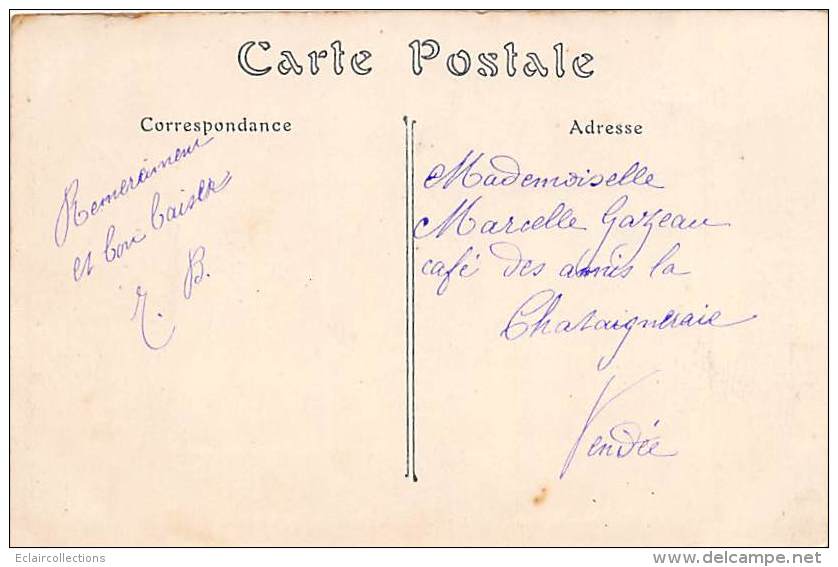 Carte Postale
Correspondance
Remerciment
et bon baiser
B.
Adresse
Mademoiselle
Marcelle Gazeau
café des amis la
Chataigneraie
Vendée
Eclaircollections
www.delcampe.net